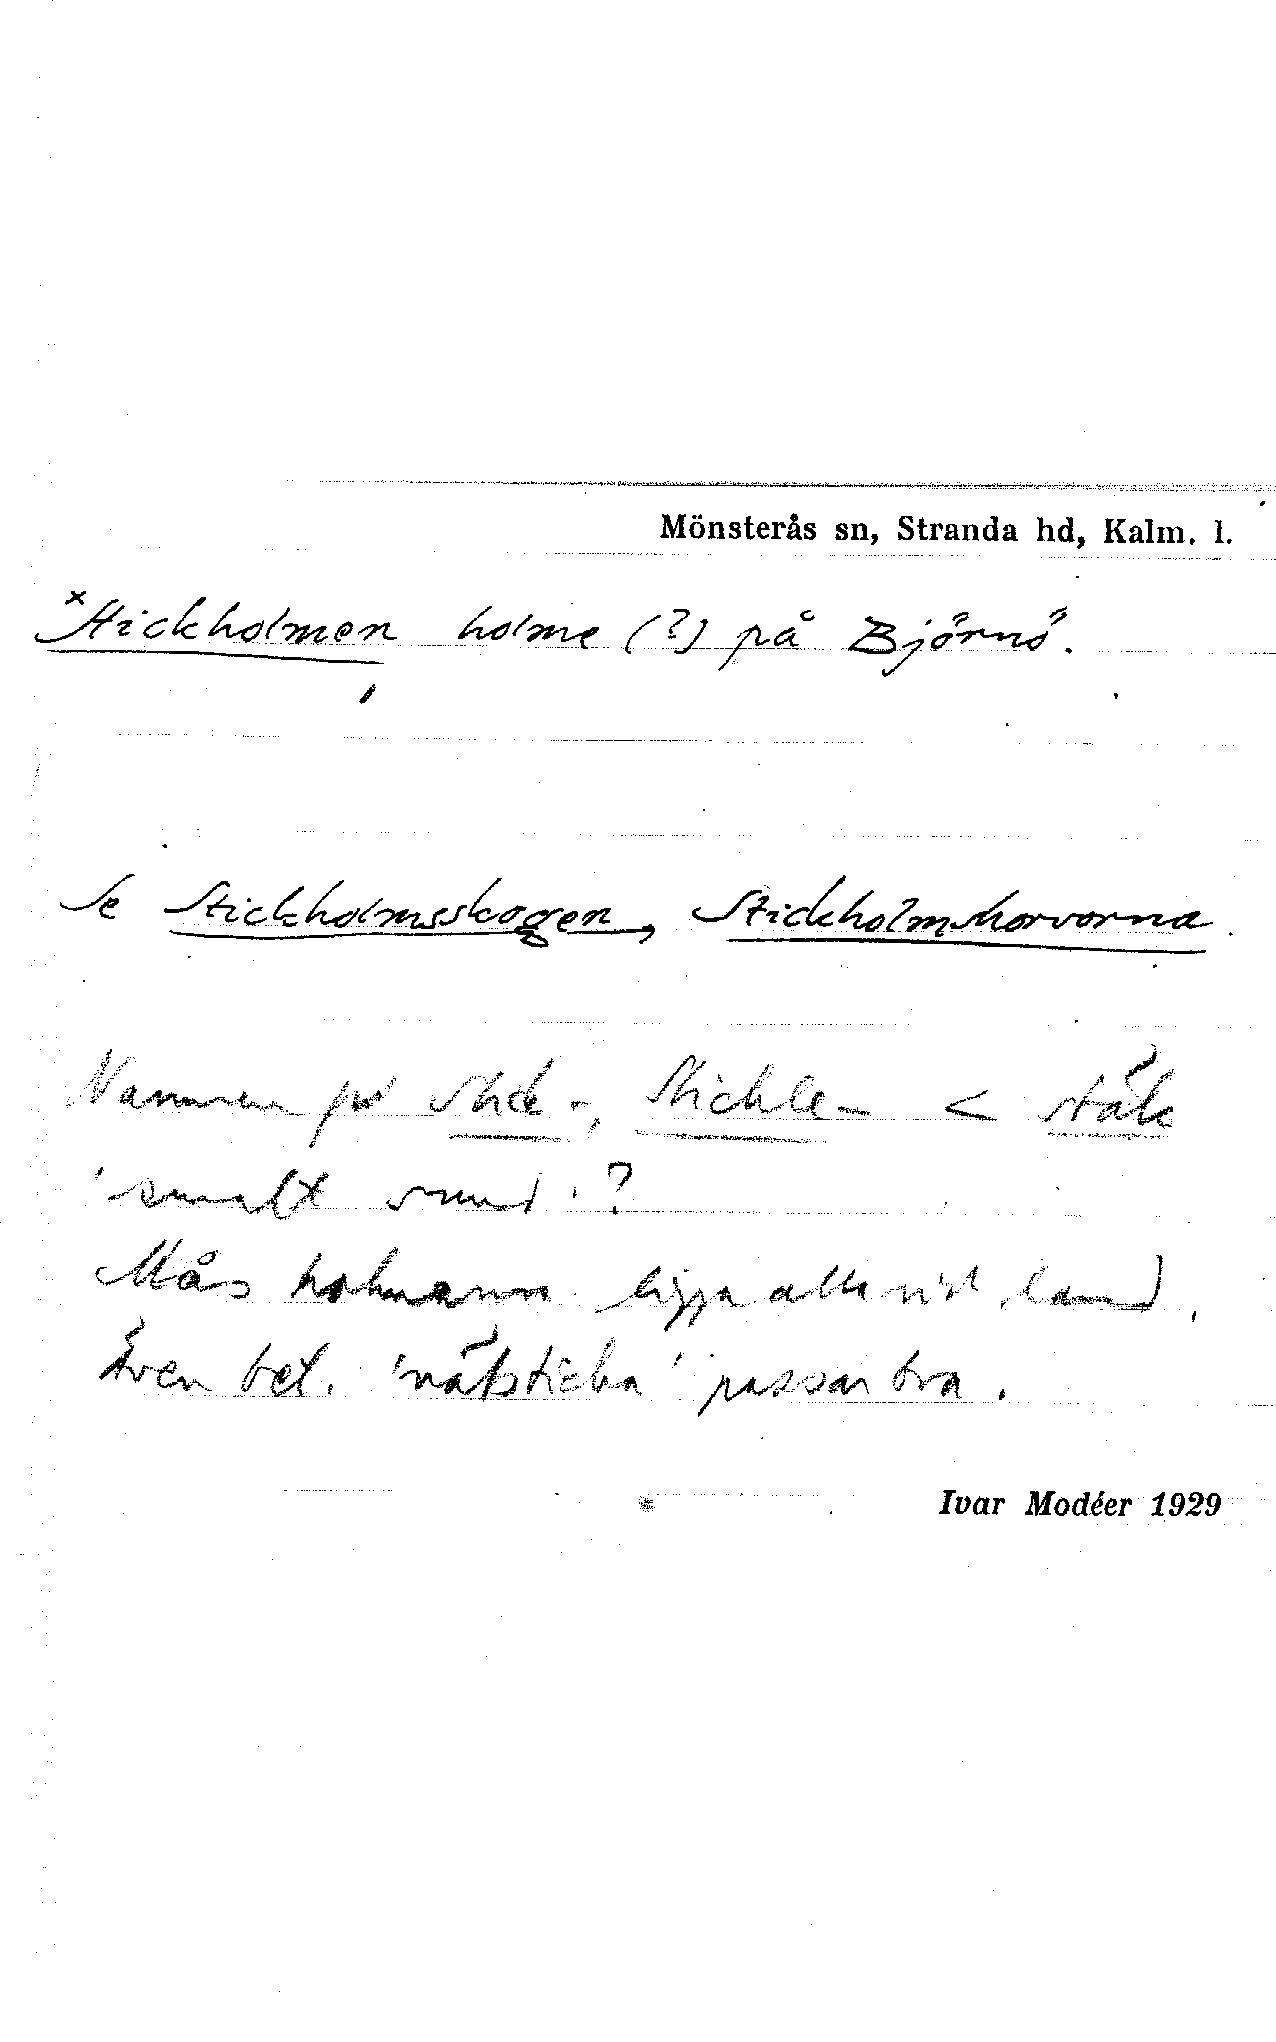 Mönsterås sn, Stranda hd, Kalm. l.
×Stickholmen holme (?) på Björnö.
Se Stickholmsskogen, Stickholmskorvorna.
Namnen på Stick-, Stickle- < stäk
'smalt sund'?
Mås holmarna ligga alla vid land.
Även bet. 'nätsticka' passar bra.
Ivar Modéer 1929